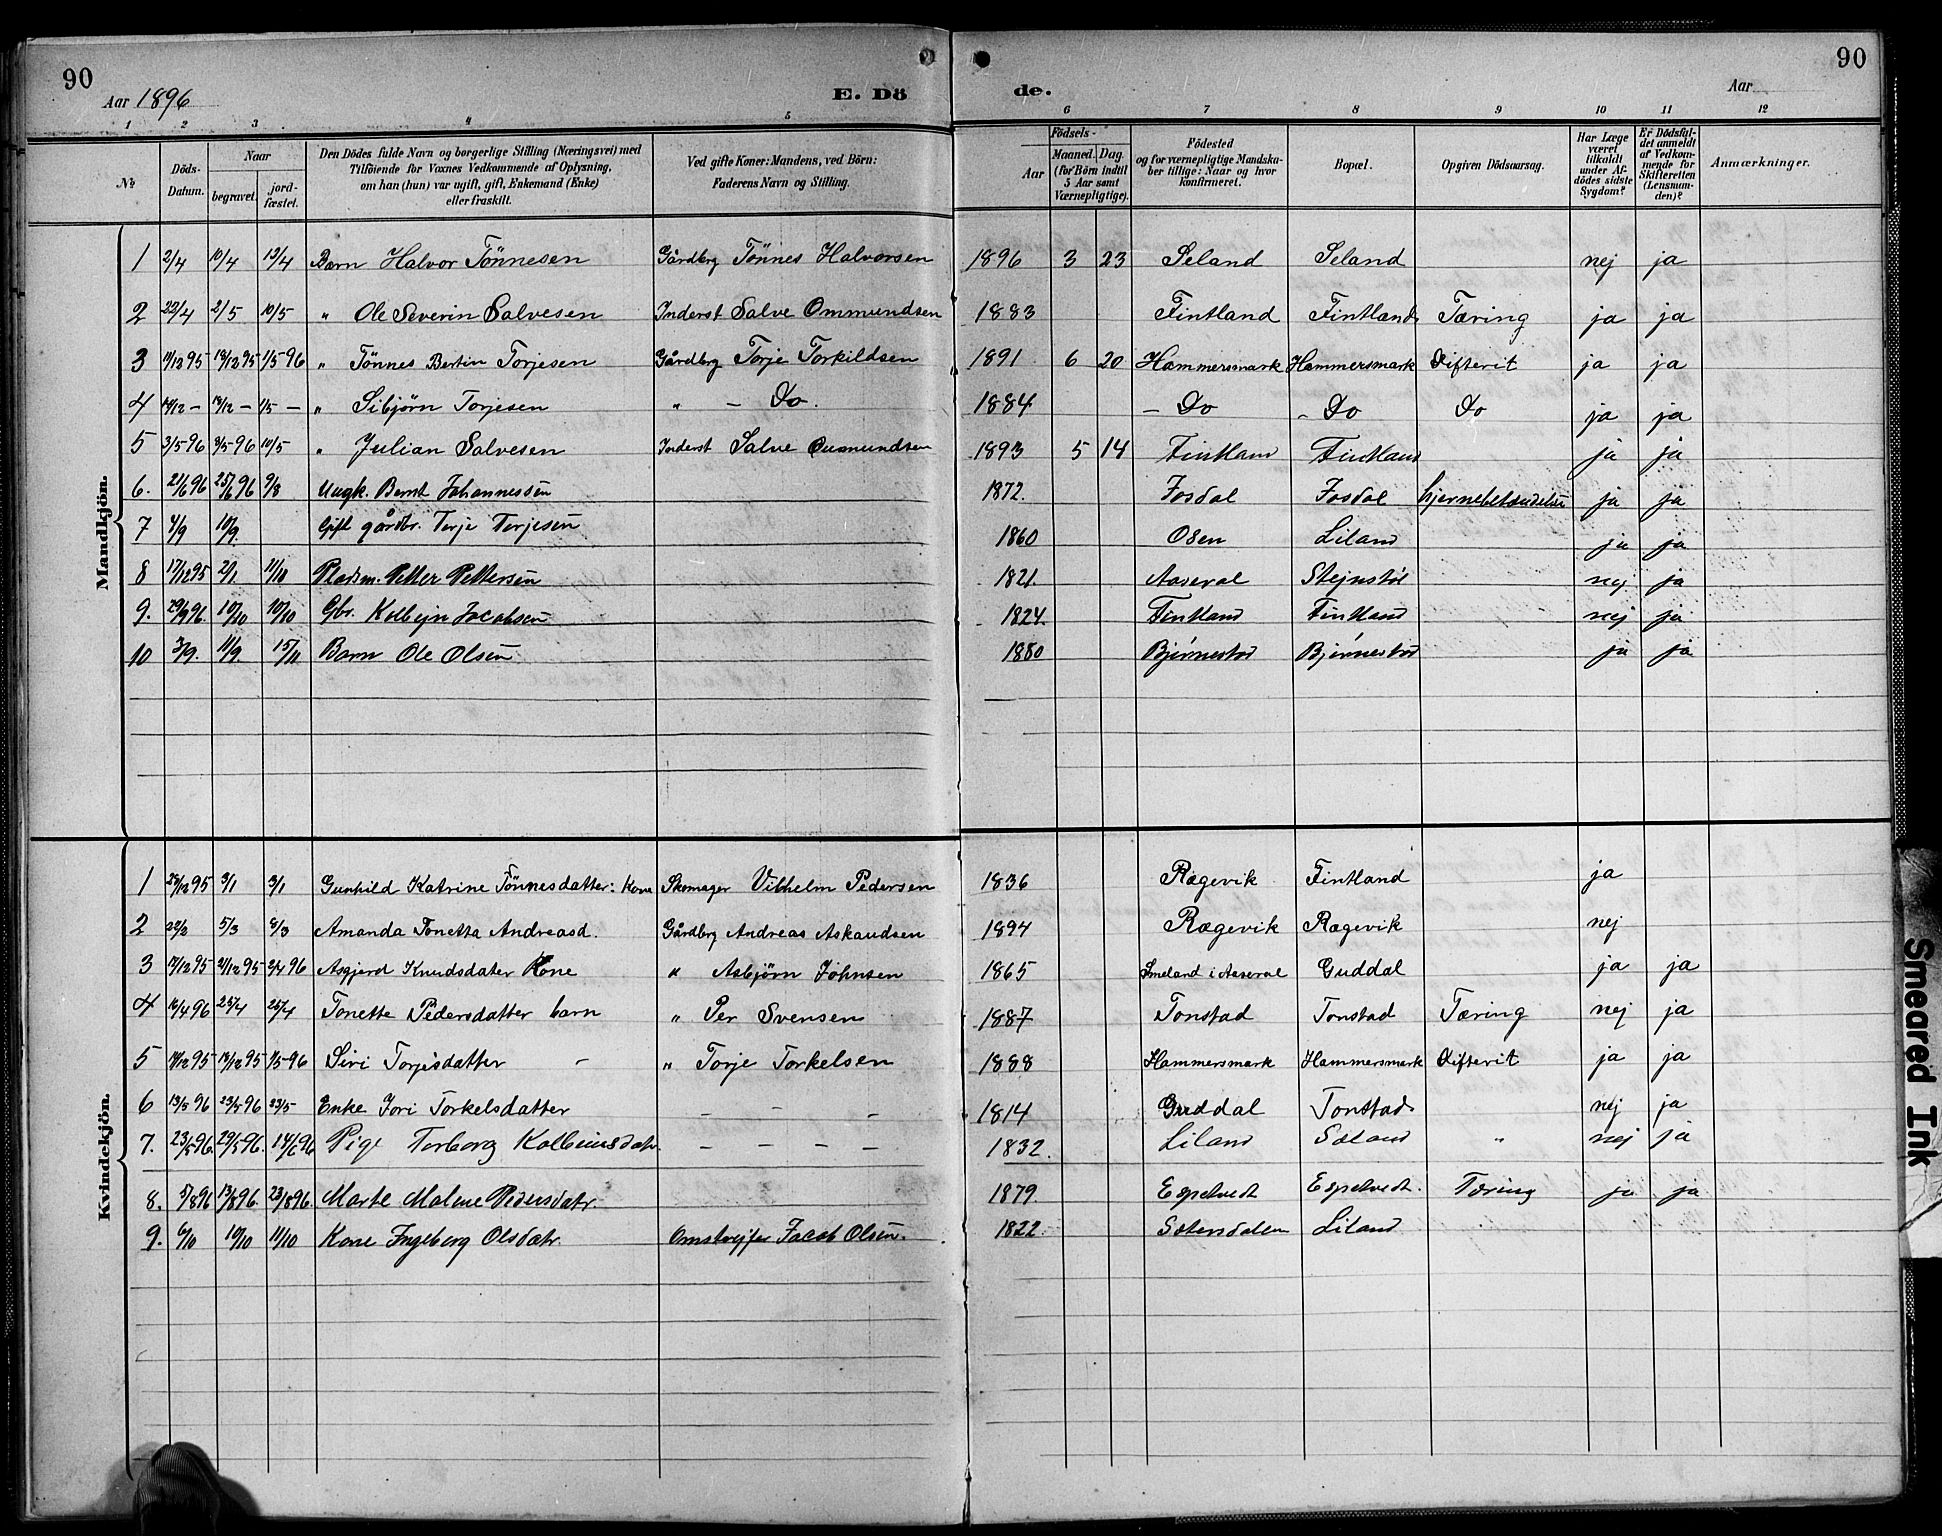 90
Aar 1896
E. Dö
de.
Aar
90
1 2 3 4 5 6 7 8 9 10 11 12
№
Döds-Datum.
Naar
begravet.
jord-fæstet.
Den Dödes fulde Navn og borgerlige Stilling (Næringsvei) med
Tilföiende for Voxnes Vedkommende af Oplysning,
om han (hun) var ugift, gift, Enkemand (Enke)
eller fraskilt.
Ved gifte Koner: Mandens, ved Börn:
Faderens Navn og Stilling.
Födsels-
Aar
Maaned. Dag.
(for Börn indtil
5 Aar samt
Værnepligtige).
Födested
og for værnepligtige Mandska-
ber tillige: Naar og hvor
konfirmeret.
Bopæl.
Opgiven Dödsaarsag.
Har Læge
været
tilkaldt
under Af-
dödes sidste
Sygdom?
Er Dödsfal-
det anmeldt
af Vedkom-
mende for
Skifteretten
(Lensman-
den)?
Anmærkninger.
Mandkjön.
1 2/4 10/4 13/4 Barn Halvor Tönnesen Gårdbrg Tönnes Halvorsen 1896 3 23 Seland Seland nej ja
2 22/4 2/5 10/5 " Ole Severin Salvesen Inderst Salve Ommundsen 1883 Fintland Fintland Tæring ja ja
3 11/12 95 19/12 95 1/5 96 " Tönnes Bertin Torjesen Gårdbrg Torje Torkildsen 1891 6 20 Hammersmark Hammersmark Difterit ja ja
4 14/12 – 19/12 – 1/5 – " Sibjörn Torjesen " – Do. 1884 – Do – Do Do ja ja
5 3/5 96 9/5 96 10/5 " Julian Salvesen Inderst Salve Ommundsen 1893 5 14 Fintland Fintland ja ja
6. 21/6 96 25/6 96 9/8 Ungk. Bernt Johannessen 1872. Josdal Josdal hjernebetændelse ja ja
7 4/9 10/9. Gift gårdbr. Terje Terjesen 1860 Osen Liland ja ja
8 17/12 95 2/1 11/10 Pladsm. Petter Pettersen 1821. Aaseral Stejnstöl nej ja
9. 29/9 96. 10/10 10/10 Gbr. Kolbejn Jacobsen 1824. Fintland Fintland nej ja
10 3/9. 11/9. 15/11 Barn Ole Olsen 1880 Bjørnestad Bjørnestad ja ja
Kvindekjön.
1 23/12 95 3/1 3/1 Gunhild Katrine Tönnesdatter: Kone Skomager Vilhelm Pedersen 1836 Rægevik Fintland ja
2 22/2 5/3 8/3 Amanda Tonetta Andreasd. Gårdbrg Andreas Askaudsen 1894 Rægevik Rægevik nej
3 17/12 95 21/12 95 2/4 96 Asgjerd Knudsdater Kone " Asbjørn Johnsen 1865 Smeland i Aaseral Guddal ja ja
4 16/4 96 25/4 25/4 Tonette Pedersdatter barn " Per Svensen 1887 Tonstad Tonstad Tæring nej ja
5 14/12 95 19/12 95 1/5 96 Siri Torjesdatter – " Torje Torkelsen 1888 Hammersmark Hammersmark Difterit ja ja
6 13/5 96 23/5 96 23/5 Enke Jori Torkelsdatter – – – 1814 Guddal Tonstad nej ja
7. 23/5 96. 29/5 96. 14/6 96 Pige Torborg Kolbeinsdatr. – – – 1832. Liland Sæland " nej ja
8. 5/8 96 13/8 96. 23/8 96. Marte Malene Pedersdatr. 1879. Espetvedt Espetvedt. Tæring ja ja
9. 6/10 10/10 11/10 Kone Ingeborg Olsdatr. Omstrejfer Jacob Olsen. 1822. Sætersdalen Liland
Smeared Ink